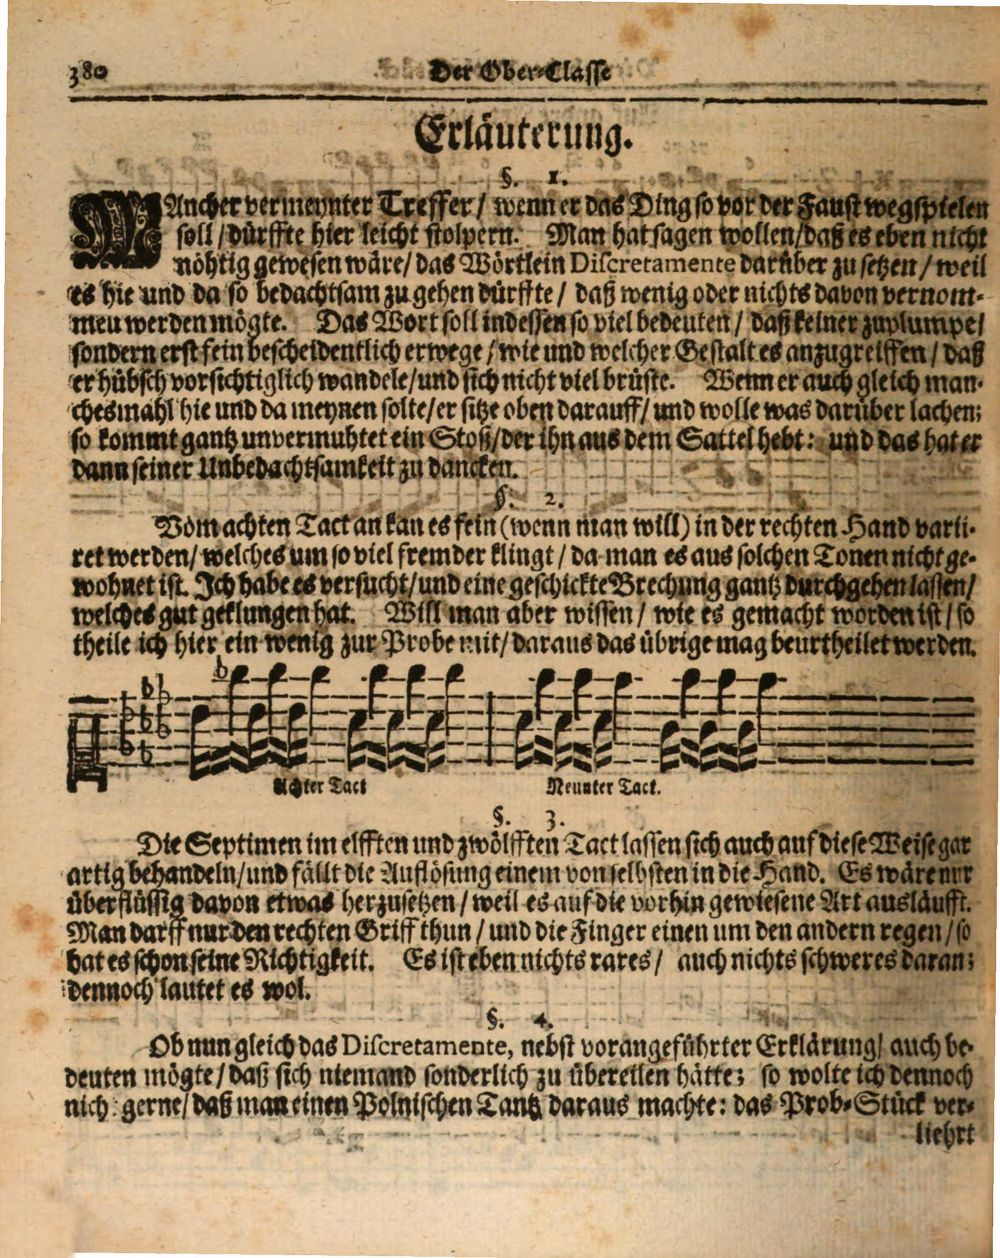 380 Der Ober-Classe
Erläuterung.
§. 1.
MAncher vermeynter Treffer/ wenn er das Ding so vor der Faust wegspielen
soll/dürffte hier leicht stolpern. Man hat sagen wollen/daß es eben nicht
nöhtig gewesen wäre/ das Wörtlein Discretamente darüber zu setzen/ weil
es hie und da so bedachtsam zu gehen dürffte/ daß wenig oder nichts davon vernom-
men werden mögte. Das Wort soll indessen so viel bedeuten/ daß keiner zuplumpe/
sondern erst fein bescheidentlich erwege/wie und welcher Gestalt es anzugreiffen/ daß
er hübsch vorsichtiglich wandele/und sich nicht viel brüste. Wenn er auch gleich man-
chesmahl hie und da meynen solte/er sitze oben darauff/ und wolle was darüber lachen;
so kommt gantz unvermuhtet ein Stoß/der ihn aus dem Sattel hebt: und das hat er
dann seiner Unbedachtsamkeit zu dancken.
§. 2.
Vom achten Tact an kan es fein (wenn man will) in der rechten Hand varii-
ret werden/ welches um so viel fremder klingt/ da man es aus solchen Tonen nicht ge-
wohnet ist. Ich habe es versucht/und eine geschickte Brechung gantz durchgehen lassen/
welches gut geklungen hat. Will man aber wissen/ wie es gemacht worden ist/ so
theile ich hier ein wenig zur Probe mit/ daraus das übrige mag beurtheilet werden.
Achter Tact Neunter Tact.
§. 3.
Die Septimen im elfften und zwölfften Tact lassen sich auch auf diese Weise gar
artig behandeln/und fällt die Auflösung einem von selbsten in die Hand. Es wäre nur
überflüssig davon etwas herzusetzen/ weil es auf die vorhin gewiesene Art ausläufft.
Man darff nur den rechten Griff thun/ und die Finger einen um den andern regen/so
hat es schon seine Richtigkeit. Es ist eben nichts rares/ auch nichts schweres daran;
dennoch lautet es wol.
§. 4.
Ob nun gleich das Discretamente, nebst vorangeführter Erklärung/ auch be-
deuten mögte/ daß sich niemand sonderlich zu übereilen hätte; so wolte ich dennoch
nich gerne/ daß man einen Polnischen Tantz daraus machte: das Prob-Stück ver-
liehrt